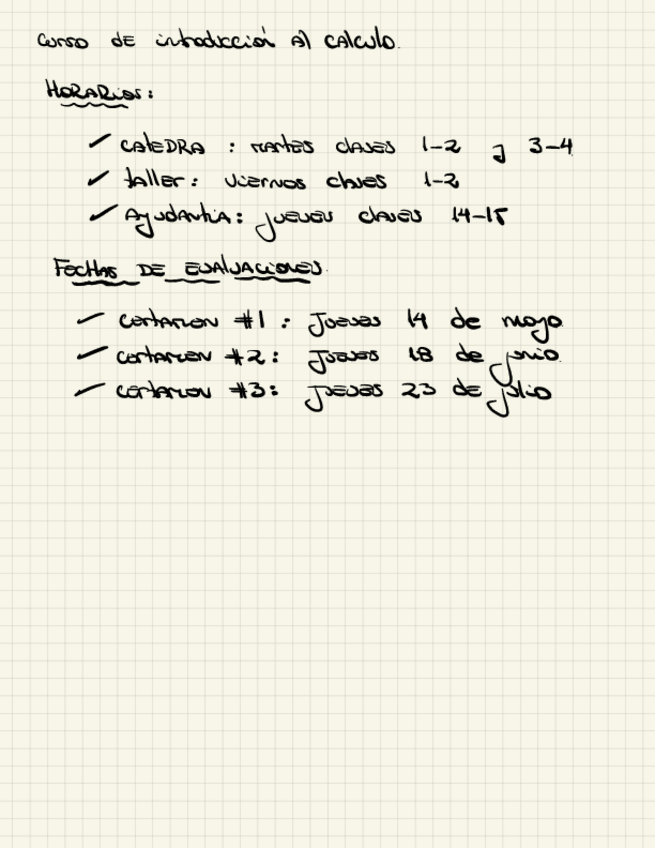 Curso de introducción al calculo.
Horarios:
✓ Catedra : martes clases 1-2 y 3-4
✓ taller: viernes clases 1-2
✓ Ayudantia: jueves clases 14-15
Fechas de evaluaciones.
✓ certamen #1 : jueves 14 de mayo
✓ certamen #2: jueves 18 de junio
✓ certamen #3: jueves 23 de julio